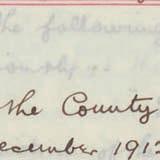 the following
the County
December 191